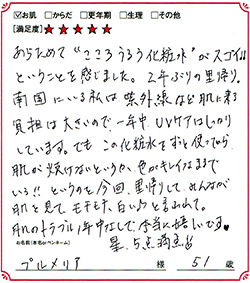 ☑お肌 □からだ □更年期 □生理 □その他
[満足度]★★★★★
あらためて“こころうるう化粧水”がスゴイ!!
ということを感じました。2年ぶりの里帰り。
南国にいる私は紫外線など肌に来る
負担は大きいので、一年中、UVケアはしっかり
しています。でも、この化粧水をずっと使ってから
肌が焼けないというか、色がキレイなままで
いる!!というのを今回、里帰りして、みんなが
肌を見て、モチモチ、白いわと言われて。
肌のトラブル1年中なしで、本当に嬉しいです♥
星5点満点
お名前(本名orペンネーム)
プルメリア 様 51歳